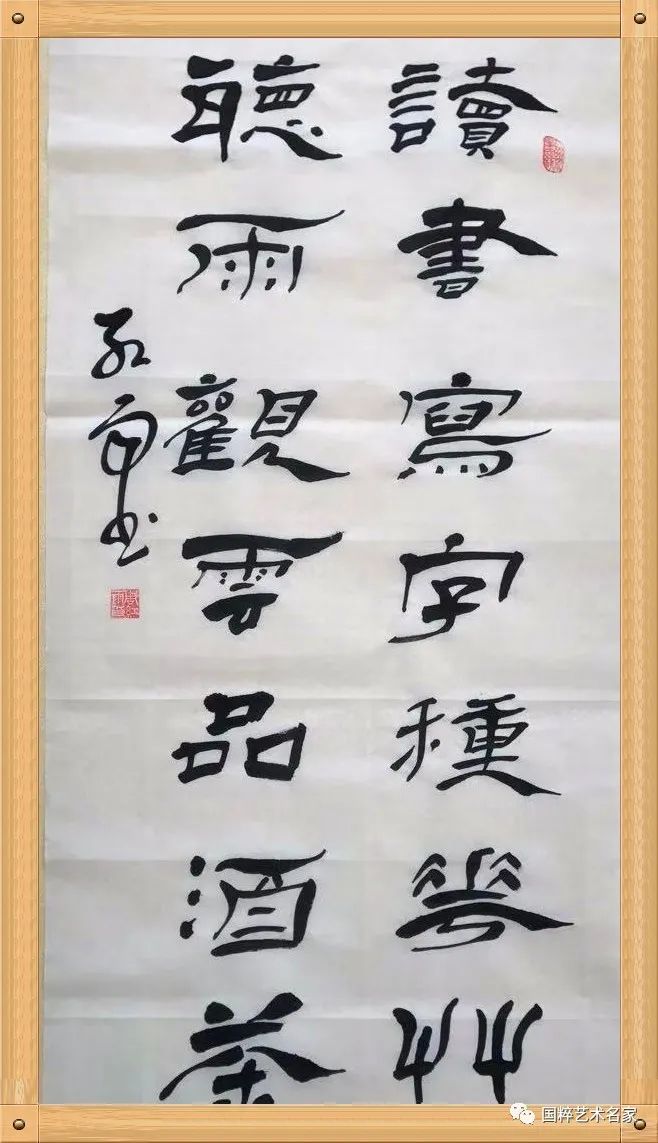 讀書寫字種花艸
聽雨觀雲品酒茶
雨書
国粹艺术名家